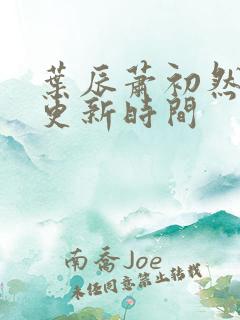 葉辰蕭初然
更新時間
南喬Joe
未经同意禁止转载